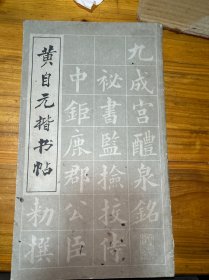 黄自元楷书帖
九成宫醴泉銘
祕書監撿挍侍
中鉅鹿郡公臣
勅
撰